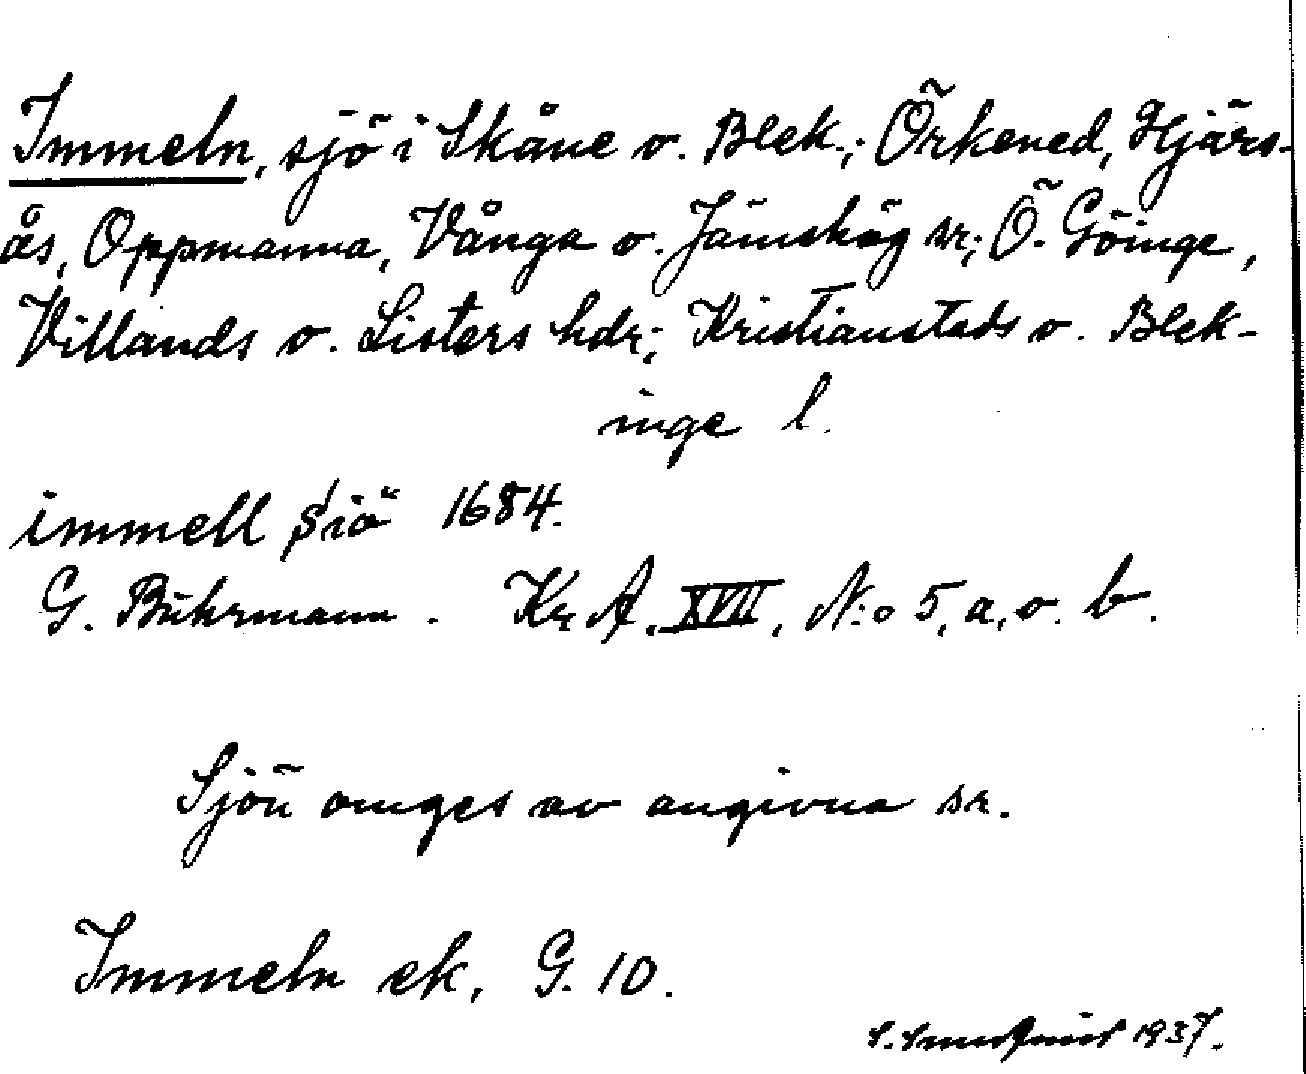 Immeln, sjö i Skåne o. Blek.; Örkened, Hjärs-
ås, Oppmanna, Vånga o. Jämshög sr; Ö. Göinge,
Villands o. Listers hdr; Kristianstads o. Blek-
inge l.
immell siö 1684.
G. Buhrmann. Kr A. XVII, N:o 5, a, o. b.
Sjön omges av angivna sr.
Immeln ek. G. 10.
1937.